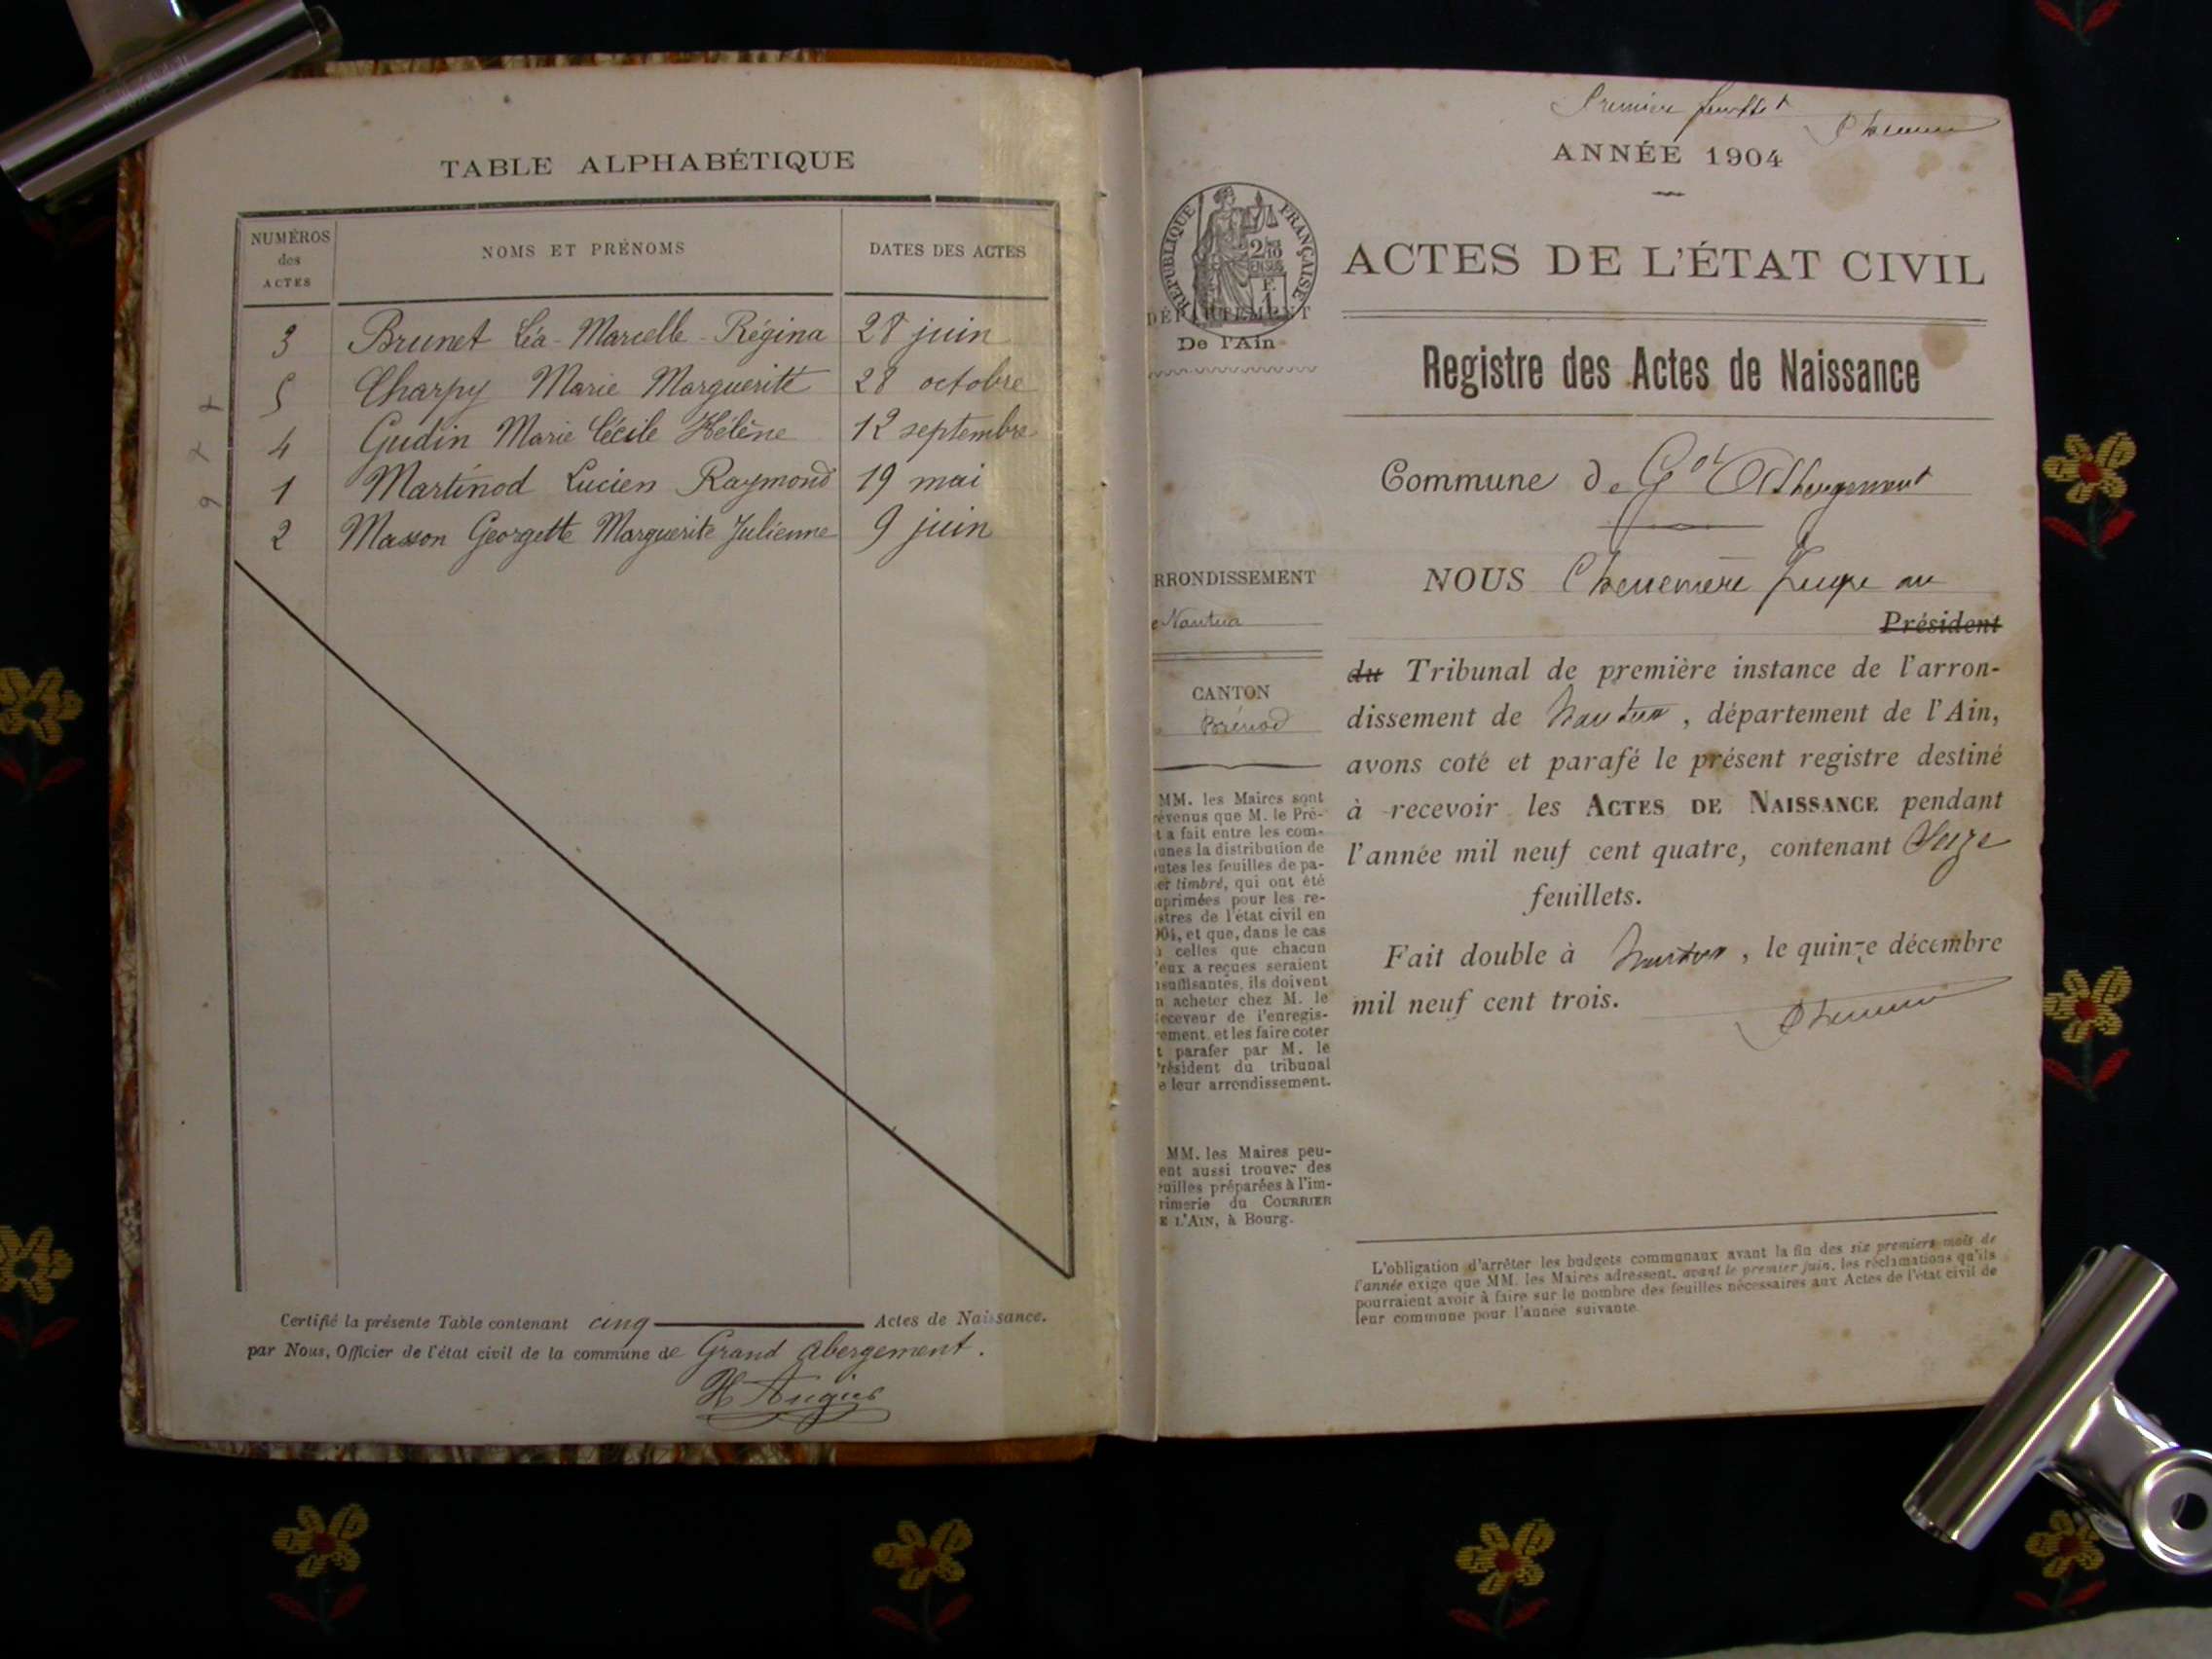 TABLE ALPHABÉTIQUE
NUMÉROS des ACTES
NOMS ET PRÉNOMS
DATES DES ACTES
3 Brunet Léa-Marcelle-Régina 28 juin
5 Charpy Marie Marguerite 28 octobre
4 Gudin Marie Cécile Hélène 12 septembre
1 Martinod Lucien Raymond 19 mai
2 Masson Georgette Marguerite Julienne 9 juin
Certifié la présente Table contenant cinq Actes de Naissance.
par Nous, Officier de l'état civil de la commune de Grand Abergement.
H Augier
Premier feuillet
ANNÉE 1904
RÉPUBLIQUE FRANÇAISE
ACTES DE L'ÉTAT CIVIL
DÉPARTEMENT
De l'Ain
Registre des Actes de Naissance
Commune de Gd Abergement
RRONDISSEMENT
e Nantua
CANTON
Brénod
MM. les Maires sont
révenus que M. le Pré-
t a fait entre les com-
unes la distribution de
utes les feuilles de pa-
er timbré, qui ont été
mprimées pour les re-
istres de l'état civil en
904, et que, dans le cas
ù celles que chacun
'eux a reçues seraient
nsuffisantes, ils doivent
n acheter chez M. le
eceveur de l'enregis-
rement, et les faire coter
t parafer par M. le
Président du tribunal
e leur arrondissement.
MM. les Maires peu-
ent aussi trouver des
euilles préparées à l'im-
rimerie du COURRIER
E L'AIN, à Bourg.
NOUS Chenemère Juge au
Président
du Tribunal de première instance de l'arron-
dissement de Nantua, département de l'Ain,
avons coté et parafé le présent registre destiné
à recevoir les ACTES DE NAISSANCE pendant
l'année mil neuf cent quatre, contenant Seize
feuillets.
Fait double à Nantua, le quinze décembre
mil neuf cent trois.
L'obligation d'arrêter les budgets communaux avant la fin des six premiers mois de
l'année exige que MM. les Maires adressent, avant le premier juin, les réclamations qu'ils
pourraient avoir à faire sur le nombre des feuilles nécessaires aux Actes de l'état civil de
leur commune pour l'année suivante.